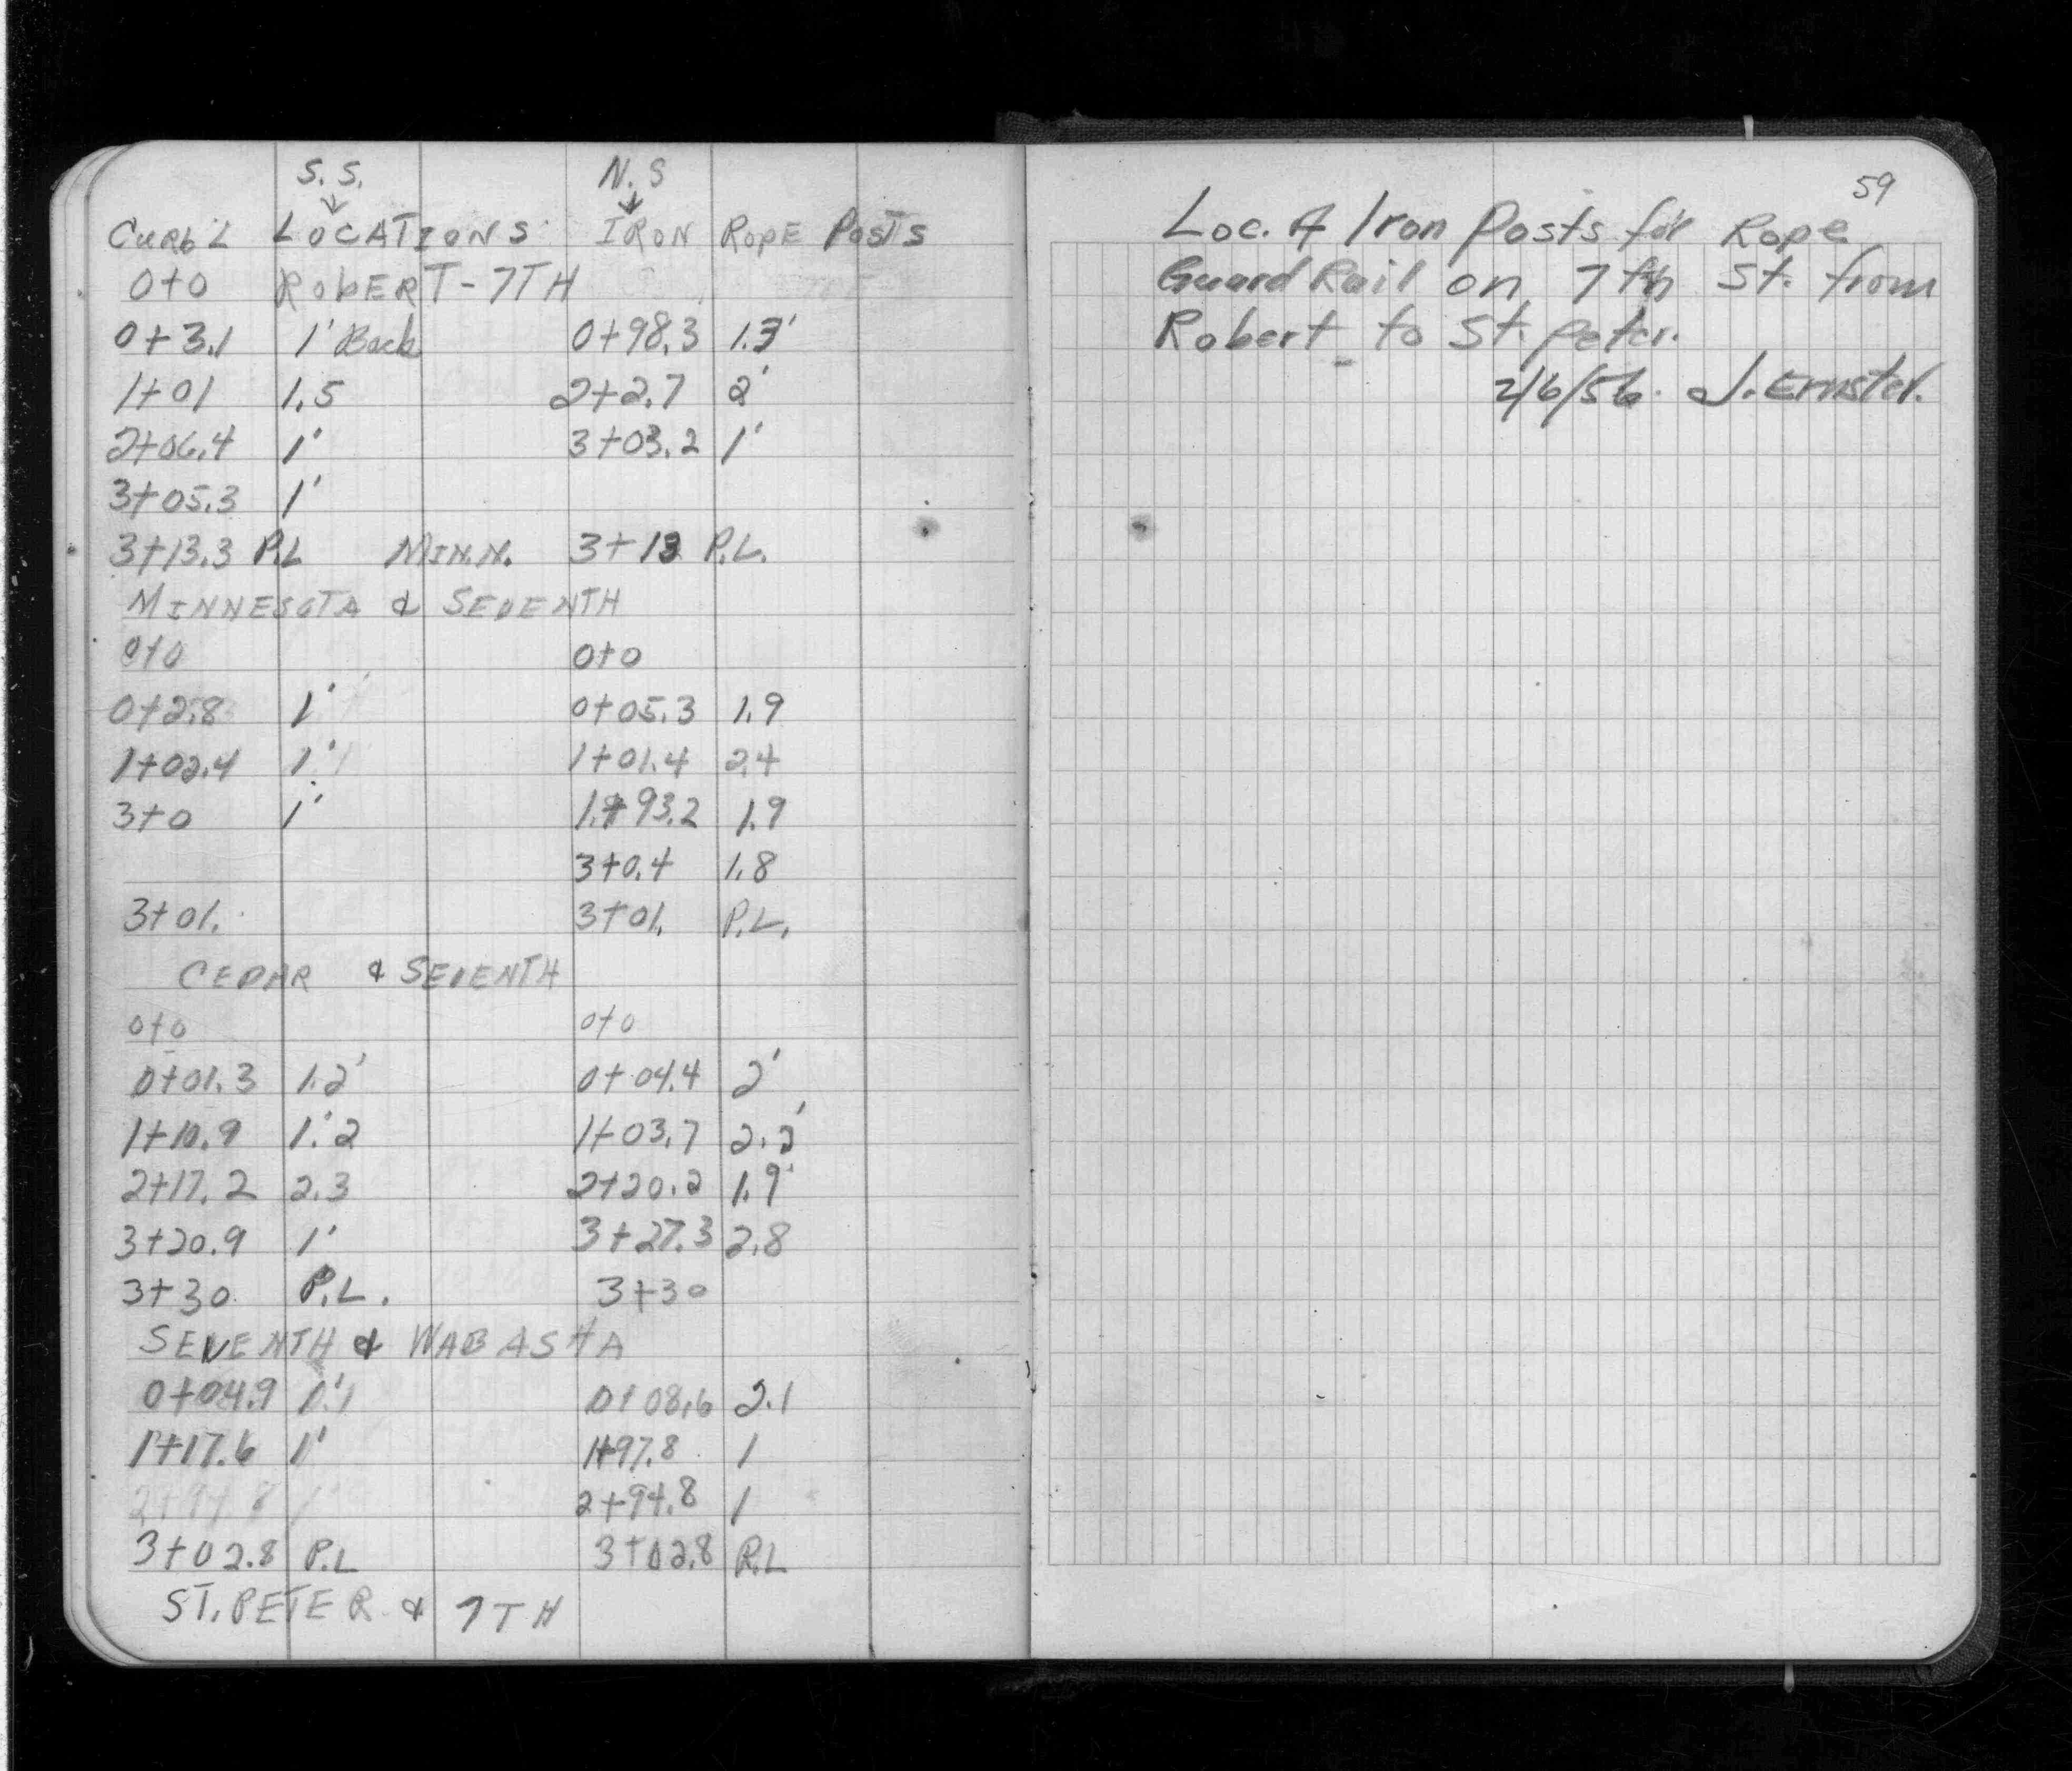 S.S. N.S
↓ ↓
CURB L LOCATIONS IRON ROPE POSTS
0+0 ROBERT - 7TH
0+3.1 1' Back 0+98.3 1.3'
1+01 1.5 2+2.7 2'
2+06.4 1' 3+03.2 1'
3+05.3 1'
3+13.3 P.L MINN. 3+13 P.L.
MINNESOTA & SEVENTH
0+0 0+0
0+2.8 1' 0+05.3 1.9
1+02.4 1' 1+01.4 2.4
3+0 1' 1+93.2 1.9
3+0.4 1.8
3+01. 3+01. P.L.
CEDAR & SEVENTH
0+0 0+0
0+01.3 1.2' 0+04.4 2'
1+10.9 1.'2 1+03.7 2.2'
2+17.2 2.3 2+20.2 1.9'
3+20.9 1' 3+27.3 2.8
3+30 P.L. 3+30
SEVENTH & WABASHA
0+04.9 0+08.6 2.1
1+17.6 1' 1+97.8 1
2+94.8 1' 2+94.8 1
3+02.8 P.L 3+02.8 P.L
ST. PETER & 7TH
59
Loc. of Iron Posts for Rope
Guard Rail on 7th St. from
Robert to St. Peter.
2/6/56 J. Ernster.